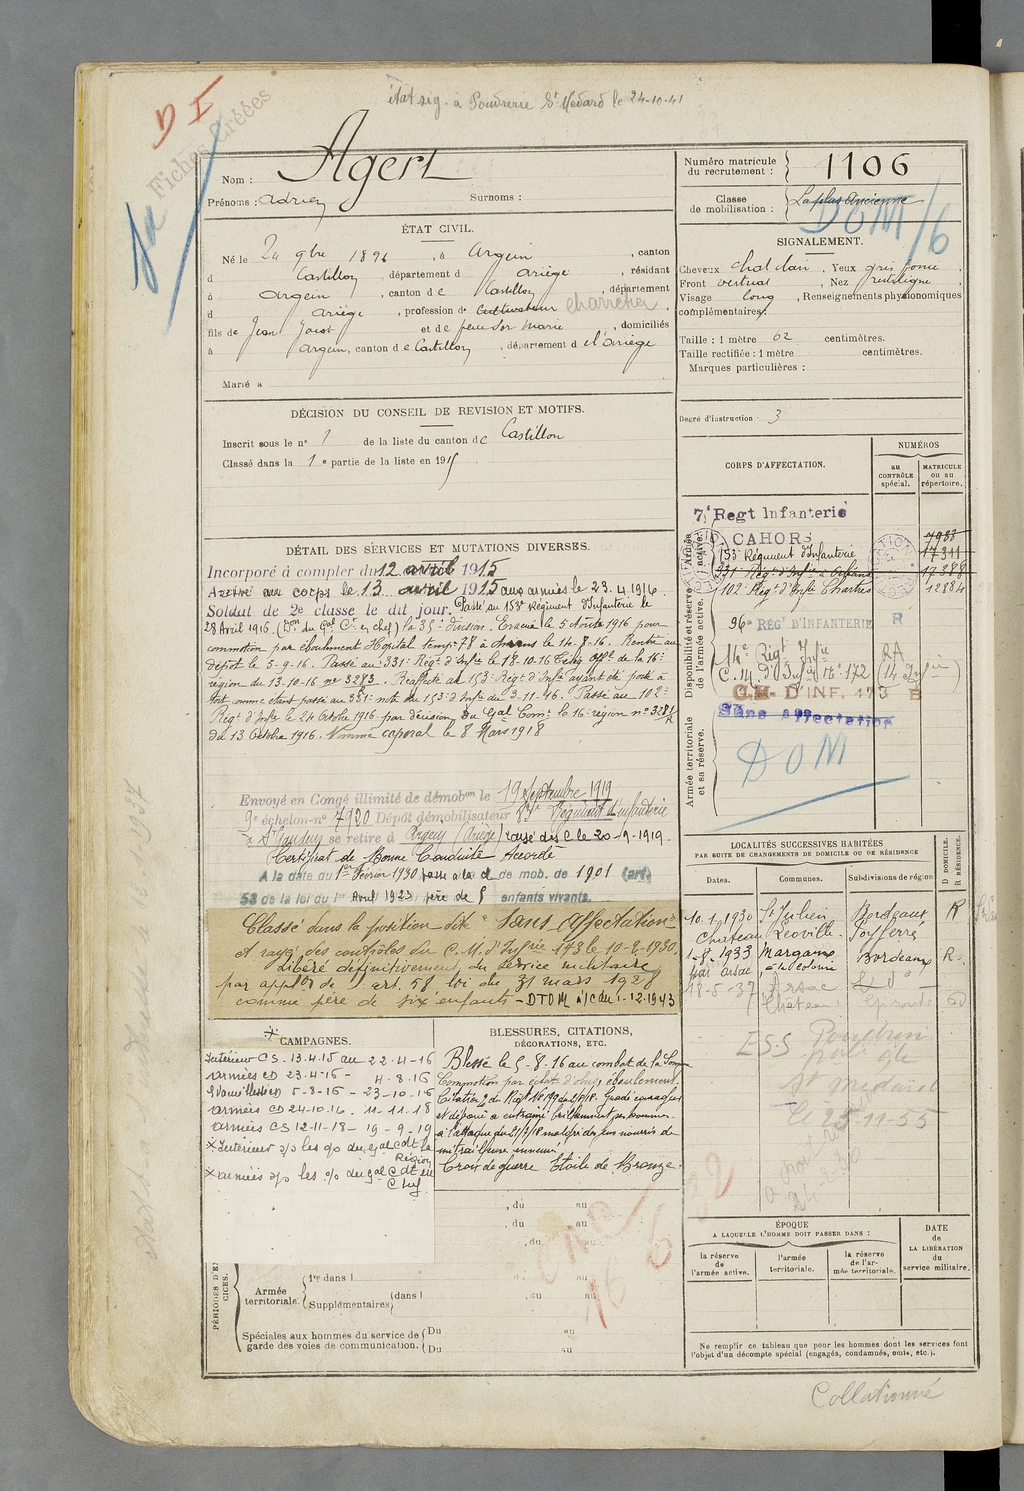 état sig. à Poudrerie St Médard le 24-10-41
D I
Fiches Créées
Nom : Agert
Prénoms : Adrien Surnoms :
Numéro matricule du recrutement : 1106
Classe de mobilisation : La plus ancienne
DOM/6
ÉTAT CIVIL.
Né le 24 9bre 1896, à Argein, canton
d Castillon, département d Ariège, résidant
à Argein, canton de Castillon, département
d Ariège, profession de Cultivateur charretier
fils de Jean et de feue Marie, domiciliés
à Argein, canton de Castillon, département de l'Ariège
Marié à
SIGNALEMENT.
Cheveux chat clair. Yeux gris foncé,
Front vertical, Nez rectiligne,
Visage long, Renseignements physionomiques
complémentaires :
Taille : 1 mètre 62 centimètres.
Taille rectifiée : 1 mètre centimètres.
Marques particulières :
Degré d'instruction : 3
DÉCISION DU CONSEIL DE REVISION ET MOTIFS.
Inscrit sous le n° 1 de la liste du canton de Castillon
Classé dans la 1e partie de la liste en 1915
DÉTAIL DES SERVICES ET MUTATIONS DIVERSES.
Incorporé à compter du 12 avril 1915
Arrivé au corps le 13 avril 1915 aux armées le 23.4.1916.
Soldat de 2e classe le dit jour. Passé au 153e Régiment d'Infanterie le
28 Avril 1916. (Don du Gal Ct en chef) la 35e division. Evacué le 5 Août 1916 pour
commotion par éboulement Hopital tempre 78 à Amiens le 14-8-16. Rentré au
dépôt le 5-9-16. Passé au 331e Régt d'Infie le 18.10.16 Télég. offel de la 16e
région du 13-10-16 no 3283. Réaffecté au 153e Régt d'Infie ayant été porté à
tort comme étant passé au 331e note du 153e d'Infie du 3-11-16. Passé au 102e
Régt d'Infie le 24 Octobre 1916 par décision du Gal Comt la 16e région no 3281/R
du 13 Octobre 1916. Nommé caporal le 8 Mars 1918
Envoyé en Congé illimité de démobon le 19 Septembre 1919
9e échelon-n° 7920 Dépôt démobilisateur 83e Régiment d'infanterie
à St Gaudens se retire à Argein (Ariège) passé dis C le 20-9-1919.
Certificat de Bonne Conduite Accordé
A la date du 1er Février 1930 passe à la cl de mob. de 1901 (art.
58 de la loi du 1er Avril 1923 père de 5 enfants vivants.
Classé dans la position dite "Sans Affectation"
et rayé des contrôles du C.M. d'Infrie 173 le 10-8-1930.
Libéré définitivement du service militaire
par applon de l'art. 58 loi du 31 mars 1928
comme père de six enfants - DTOM à/c du 1-12-1943
CORPS D'AFFECTATION.
NUMÉROS
au CONTRÔLE spécial.
MATRICULE ou au répertoire.
Armée active.
7e Regt Infanterie
CAHORS 7983
153e Régiment d'Infanterie 17311
331e Régt d'Infie à Orléans 17388
102e Régt d'Infie Chartres 12884
Disponibilité et réserve de l'armée active.
96e RÉGt D'INFANTERIE R
14e Régt Infie RA
C.M. d'Infie 16e 172 (14 Infie)
C.M. D'INF. 173 B
Sans Affectation
Armée territoriale et sa réserve.
DOM
LOCALITÉS SUCCESSIVES HABITÉES
PAR SUITE DE CHANGEMENTS DE DOMICILE OU DE RÉSIDENCE
Dates. Communes. Subdivisions de région D DOMICILE. R RÉSIDENCE.
10.1.1930 St Julien Bordeaux R
Chateau Léoville-Poyferré
1-8-1933 Margaux Bordeaux R.
par Arsac à la colonie
18-5-37 Arsac do
Château Gironde
E.S.S Poudrerie
St Médard
CAMPAGNES.
Intérieur CS. 13.4.15 au 22-4-16
Armées CD 23.4-16 - 4.8.16
5-8-16 - 23-10-16
Armées CD 24-10.16. 11-11-18
Armées CS 12-11-18 - 19-9-19
BLESSURES, CITATIONS, DÉCORATIONS, ETC.
Blessé le 5-8-16 au combat de la Somme
Commotion par éclat d'obus, éboulement.
à l'attaque du malgré des feux nourris de
mitrailleuse ennemie.
Croix de guerre Etoile de Bronze.
, du au
, du au
, du au
PÉRIODES D'EXERCICES.
Armée territoriale. 1re dans l , du au
Supplémentaires (dans l , du au
Spéciales aux hommes du service de garde des voies de communication. Du au
Du au
ÉPOQUE
A LAQUELLE L'HOMME DOIT PASSER DANS :
la réserve de l'armée active.
l'armée territoriale.
la réserve de l'armée territoriale.
DATE de LA LIBÉRATION du service militaire.
Ne remplir ce tableau que pour les hommes dont les services font
l'objet d'un décompte spécial (engagés, condamnés, omis, etc.).
Collationné